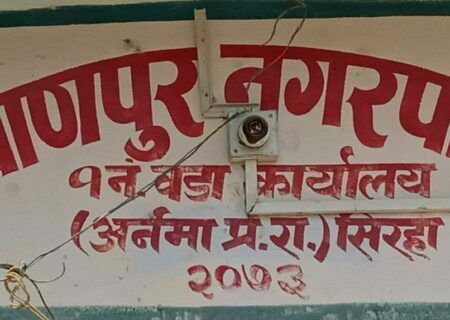 याणपुर नगरपा
१ नं. वडा कार्यालय
(अर्नमा प्र.रा.) सिरहा
२०७३